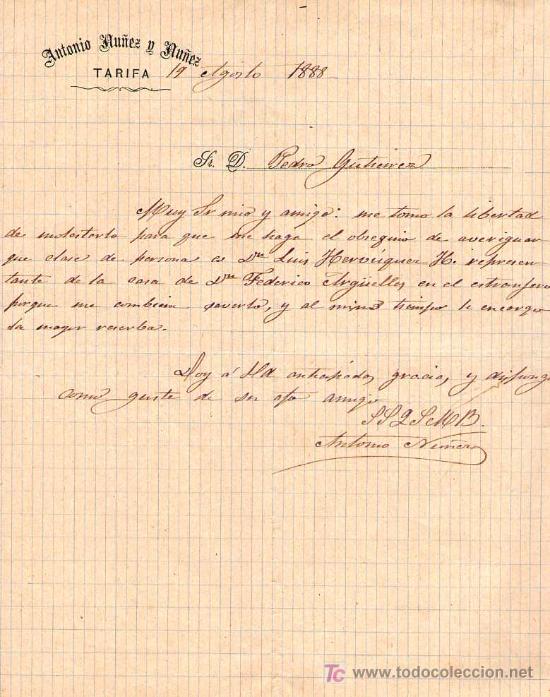 Antonio Nuñez y Nuñez
TARIFA 19 Agosto 1888
Sr. D. Pedro Gutierrez
Muy Sr mio y amigo: me tomo la libertad
de molestarlo para que me haga el obsequio de averiguar
que clase de persona es Dn Luis Henriquez H. represen
tante de la casa de Dn Federico Argüelles en el extranjero
porque me combiene saverlo, y al mismo tiempo le encargo
la mayor reserba.
Doy á Ud anticipadas gracias, y disponga
como guste de su afo amigo
S S Q S M B.
Antonio Nuñez
TC www.todocoleccion.net